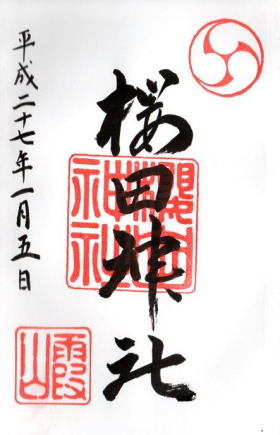 桜田神社
櫻田神社
平成二十七年一月五日
霞山